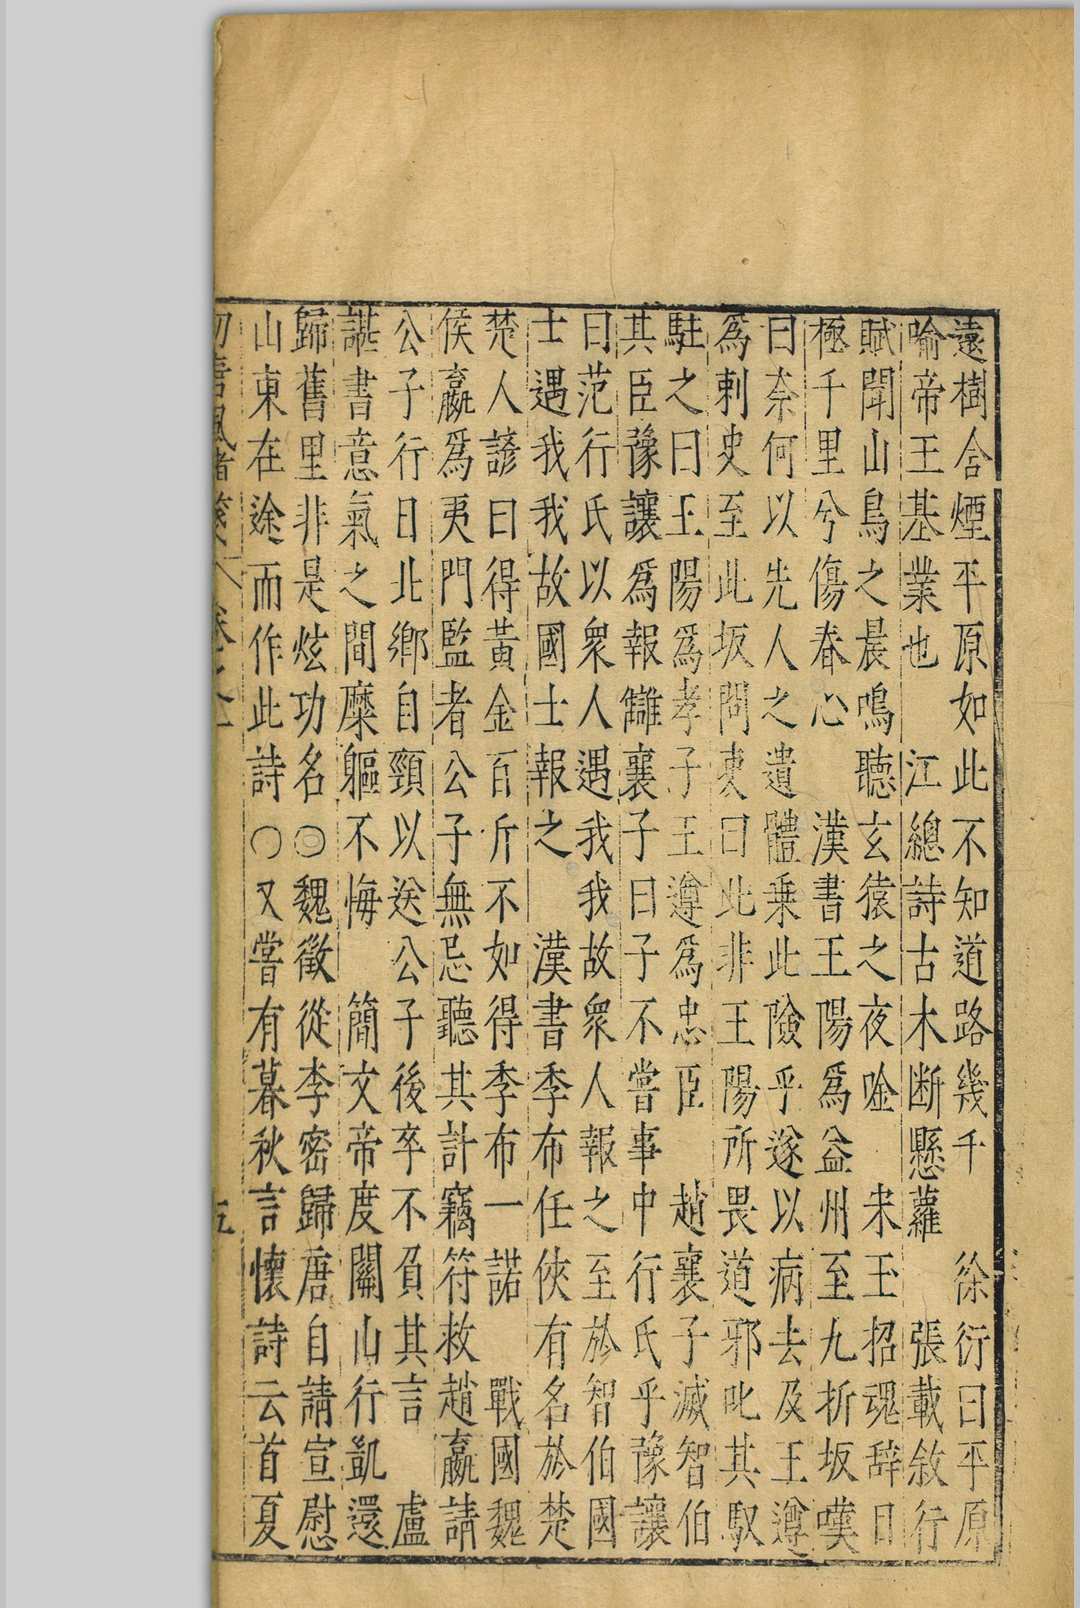 遠樹含煙平原如此不知道路幾千　徐衍曰平原
喻帝王基業也　江總詩古木断懸蘿　張載敘行
賦聞山鳥之晨鳴聽玄猿之夜唫　宋玉招魂辞曰
極千里兮傷春心　漢書王陽爲益州至九折坂嘆
曰奈何以先人之遺體乗此險乎遂以病去及王遵
爲刺史至此坂問吏曰此非王陽所畏道邪叱其馭
駐之曰王陽爲孝子王遵爲忠臣　趙襄子滅智伯
其臣豫讓爲報讎襄子曰子不嘗事中行氏乎豫讓
曰范行氏以衆人遇我我故衆人報之至於智伯國
士遇我我故國士報之　漢書季布任俠有名於楚
楚人諺曰得黃金百斤不如得季布一諾　戰國魏
侯嬴爲夷門監者公子無忌聽其計竊符救趙嬴請
公子行日北鄉自頸以送公子後卒不負其言　盧
諶書意氣之間糜軀不悔　簡文帝度關山行凱還
歸舊里非是炫功名◎魏徵從李密歸唐自請宣慰
山東在途而作此詩○又嘗有暮秋言懷詩云首夏